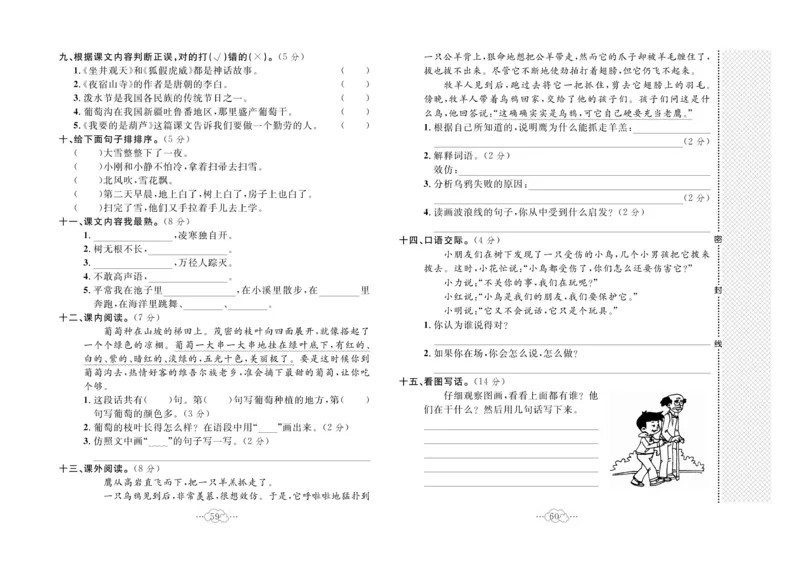 九、根据课文内容判断正误,对的打(√)错的(×)。(5分)
1.《坐井观天》和《狐假虎威》都是神话故事。 ( )
2.《夜宿山寺》的作者是唐朝的李白。 ( )
3. 泼水节是我国各民族的传统节日之一。 ( )
4. 葡萄沟在我国新疆吐鲁番地区,那里盛产葡萄干。 ( )
5.《我要的是葫芦》这篇课文告诉我们要做一个勤劳的人。 ( )
十、给下面句子排排序。(5分)
( )大雪整整下了一夜。
( )小刚和小静不怕冷,拿着扫帚去扫雪。
( )北风吹,雪花飘。
( )第二天早晨,地上白了,树上白了,房子上也白了。
( )扫完了雪,他们又手拉着手儿去上学。
十一、课文内容我最熟。(8分)
1. ,凌寒独自开。
2. 树无根不长, 。
3. ,万径人踪灭。
4. 不敢高声语, 。
5. 平常我在池子里 ,在小溪里散步,在 里
奔跑,在海洋里跳舞、 、 。
十二、课内阅读。(7分)
葡萄种在山坡的梯田上。茂密的枝叶向四面展开,就像搭起了
一个个绿色的凉棚。葡萄一大串一大串地挂在绿叶底下,有红的、
白的、紫的、暗红的、淡绿的,五光十色,美丽极了。要是这时候你到
葡萄沟去,热情好客的维吾尔族老乡,准会摘下最甜的葡萄,让你吃
个够。
1. 这段话共有( )句。第( )句写葡萄种植的地方,第( )
句写葡萄的颜色多。(3分)
2. 葡萄的枝叶长得怎么样?在语段中用“ ”画出来。(2分)
3. 仿照文中画“ ”的句子写一写。(2分)
十三、课外阅读。(8分)
鹰从高岩直飞而下,把一只羊羔抓走了。
一只乌鸦见到后,非常羡慕,很想效仿。于是,它呼啦啦地猛扑到
59
一只公羊背上,狠命地想把公羊带走,然而它的爪子却被羊毛缠住了,
拔也拔不出来。尽管它不断地使劲拍打着翅膀,但它仍飞不起来。
牧羊人见到后,跑过去将它一把抓住,剪去它翅膀上的羽毛。
傍晚,牧羊人带着乌鸦回家,交给了他的孩子们。孩子们问这是什
么鸟,他回答说:“这确确实实是乌鸦,可它自己硬要充当老鹰。”
1. 根据自己所知道的,说明鹰为什么能抓走羊羔:
(2分)
2. 解释词语。(2分)
效仿:
3. 分析乌鸦失败的原因:
(2分)
4. 读画波浪线的句子,你从中受到什么启发?(2分)
十四、口语交际。(4分)
小朋友们在树下发现了一只受伤的小鸟,几个小男孩把它拨来
拨去。这时,小花忙说:“小鸟都受伤了,你们怎么还要伤害它?”
小力说:“不关你的事,我们在玩呢?”
小红说:“小鸟是我们的朋友,我们要保护它。”
小明说:“它又不会说话,它只是个玩具。”
1. 你认为谁说得对?
2. 如果你在场,你会怎么说,怎么做?
十五、看图写话。(14分)
仔细观察图画,看看上面都有谁?他
们在干什么?然后用几句话写下来。
60
密
封
线